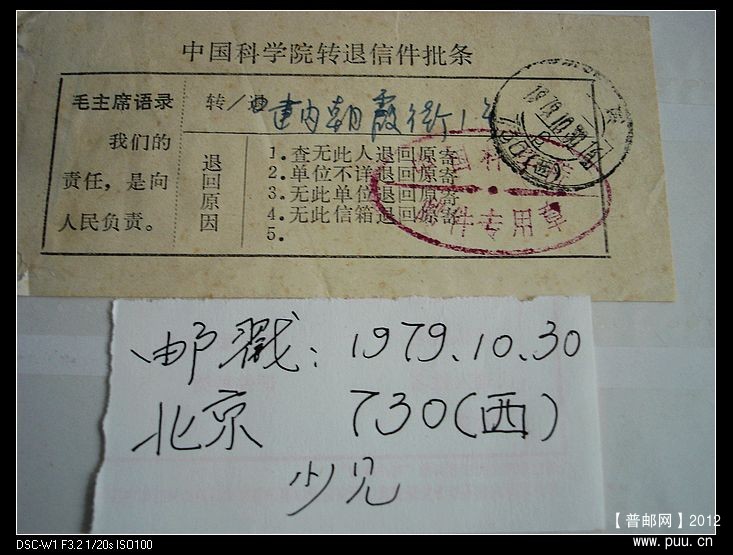 中国科学院转退信件批条
毛主席语录
我们的
责任，是向
人民负责。
转／退 建内朝霞街1号
退回原因
1.查无此人退回原寄
2.单位不详退回原寄
3.无此单位退回原寄
4.无此信箱退回原寄
5.
件专用章
1979.10.30
北京
730(西)
邮戳：1979.10.30
北京 730(西)
少见
【普邮网】2012
www.puu.cn
DSC-W1 F3.2 1/20s ISO100